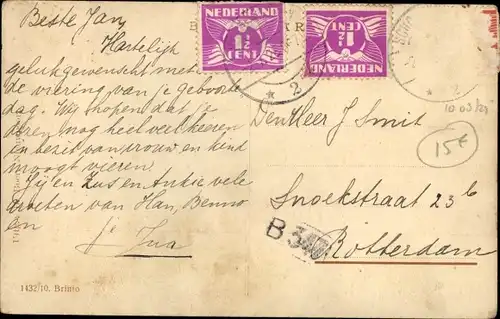 Beste Jan,
Hartelijk
gelukgewenscht met
de viering van je geboorte
dag. Wij hopen dat je
deren mog heel veel keeren
in bezit van vrouw en kind
moogt vieren.
Jij en Zus en Ankie vele
groeten van Han, Benno
en
je Jua
NEDERLAND
1½
CENT
NEDERLAND
1½
CENT
2
2
10 03/21
15€
Den Heer J Smit
Snoekstraat 23 b
Rotterdam
B 340
1432/10. Brimo